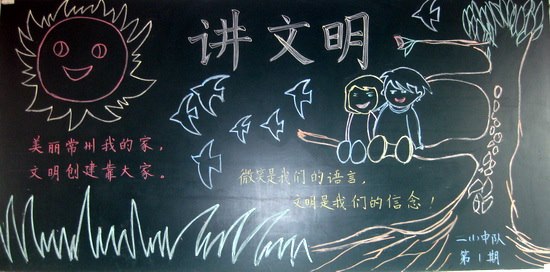 讲文明
美丽常州我的家，
文明创建靠大家。
微笑是我们的语言，
文明是我们的信念！
一小中队
第1期